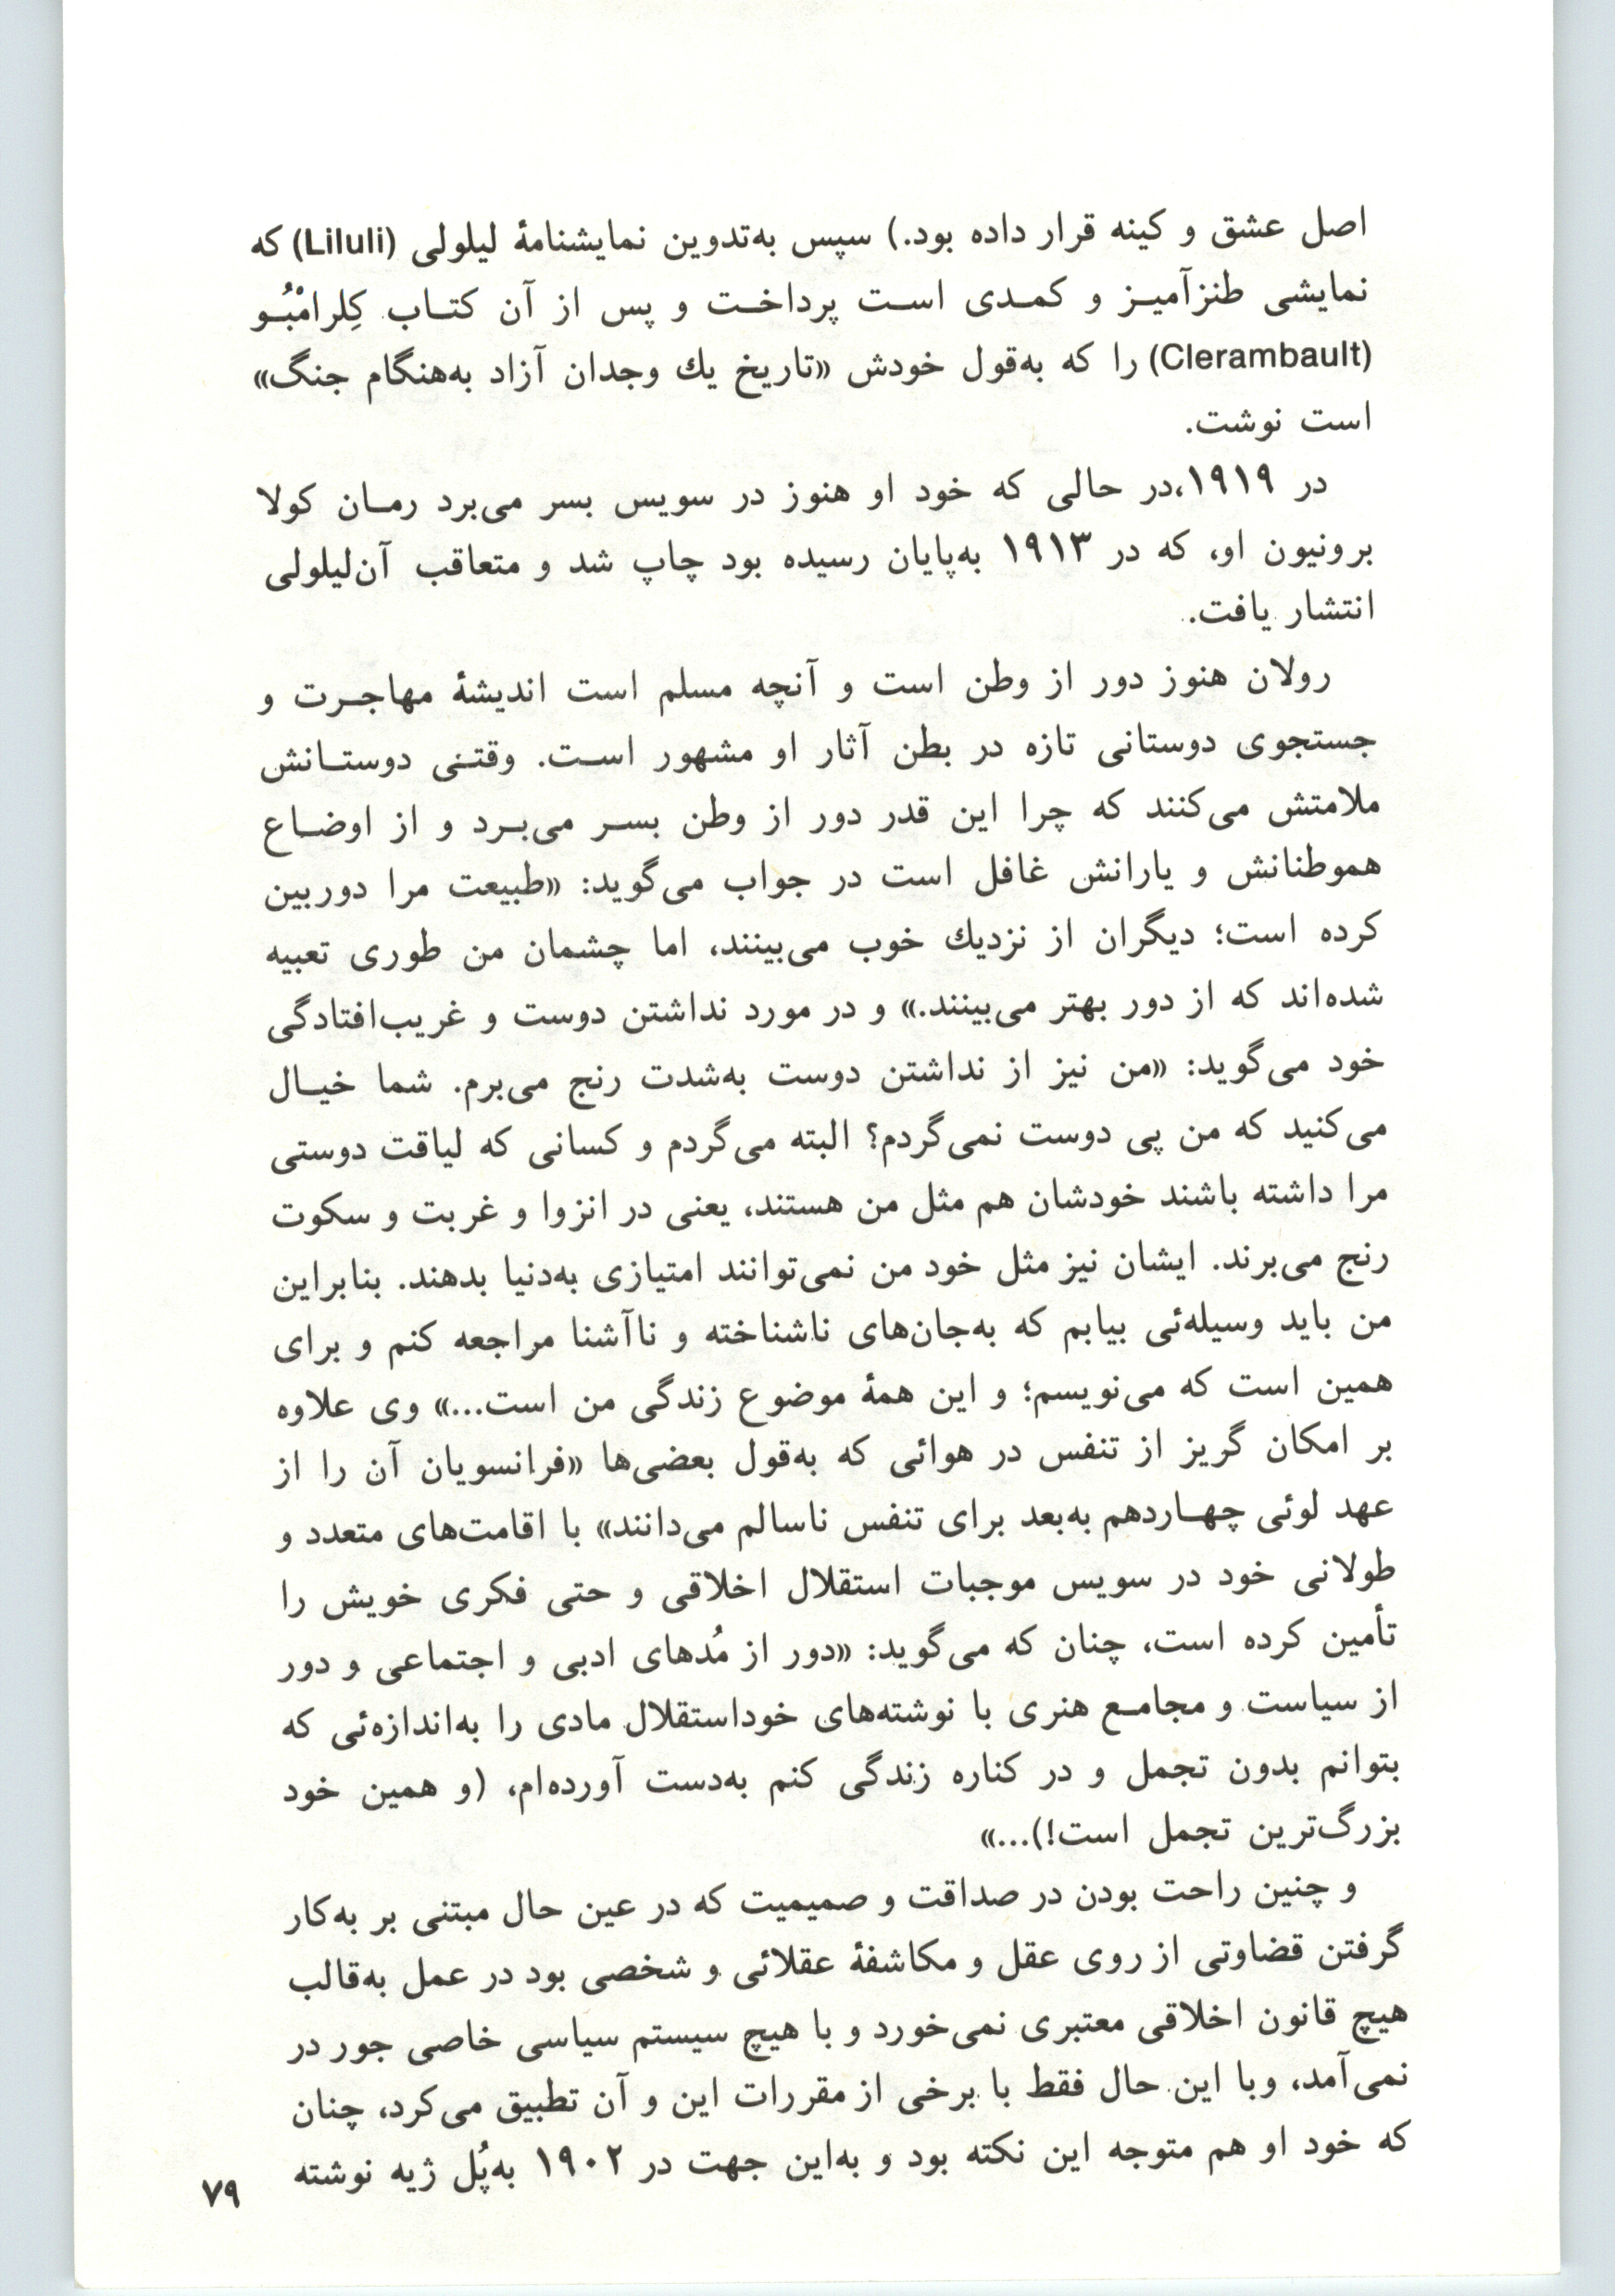 اصل عشق و کینه قرار داده بود.) سپس به‌تدوین نمایشنامهٔ لیلولی (Liluli) که
نمایشی طنزآمیـز و کمـدی اسـت پرداخـت و پس از آن کتـاب کِلرامْبُـو
(Clerambault) را که به‌قول خودش «تاریخ یك وجدان آزاد به‌هنگام جنگ»
است نوشت.
در ۱۹۱۹،در حالی که خود او هنوز در سویس بسر می‌برد رمـان کولا
برونیون او، که در ۱۹۱۳ به‌پایان رسیده بود چاپ شد و متعاقب آن‌لیلولی
انتشار یافت.
رولان هنوز دور از وطن است و آنچه مسلم است اندیشهٔ مهاجـرت و
جستجوی دوستانی تازه در بطن آثار او مشهور اسـت. وقتـی دوستـانش
ملامتش می‌کنند که چرا این قدر دور از وطن بسـر می‌بـرد و از اوضـاع
هموطنانش و یارانش غافل است در جواب می‌گوید: «طبیعت مرا دوربین
کرده است؛ دیگران از نزدیك خوب می‌بینند، اما چشمان من طوری تعبیه
شده‌اند که از دور بهتر می‌بینند.» و در مورد نداشتن دوست و غریب‌افتادگی
خود می‌گوید: «من نیز از نداشتن دوست به‌شدت رنج می‌برم. شما خیـال
می‌کنید که من پی دوست نمی‌گردم؟ البته می‌گردم و کسانی که لیاقت دوستی
مرا داشته باشند خودشان هم مثل من هستند، یعنی در انزوا و غربت و سکوت
رنج می‌برند. ایشان نیز مثل خود من نمی‌توانند امتیازی به‌دنیا بدهند. بنابراین
من باید وسیله‌ئی بیابم که به‌جان‌های ناشناخته و ناآشنا مراجعه کنم و برای
همین است که می‌نویسم؛ و این همهٔ موضوع زندگی من است...» وی علاوه
بر امکان گریز از تنفس در هوائی که به‌قول بعضی‌ها «فرانسویان آن را از
عهد لوئی چهـاردهم به‌بعد برای تنفس ناسالم می‌دانند» با اقامت‌های متعدد و
طولانی خود در سویس موجبات استقلال اخلاقی و حتی فکری خویش را
تأمین کرده است، چنان که می‌گوید: «دور از مُدهای ادبی و اجتماعی و دور
از سیاست و مجامـع هنری با نوشته‌های خوداستقلال مادی را به‌اندازه‌ئی که
بتوانم بدون تجمل و در کناره زندگی کنم به‌دست آورده‌ام، (و همین خود
بزرگ‌ترین تجمل است!)...»
و چنین راحت بودن در صداقت و صمیمیت که در عین حال مبتنی بر به‌کار
گرفتن قضاوتی از روی عقل و مکاشفهٔ عقلائی و شخصی بود در عمل به‌قالب
هیچ قانون اخلاقی معتبری نمی‌خورد و با هیچ سیستم سیاسی خاصی جور در
نمی‌آمد، وبا این حال فقط با برخی از مقررات این و آن تطبیق می‌کرد، چنان
که خود او هم متوجه این نکته بود و به‌این جهت در ۱۹۰۲ به‌پُل ژیه نوشته
۷۹